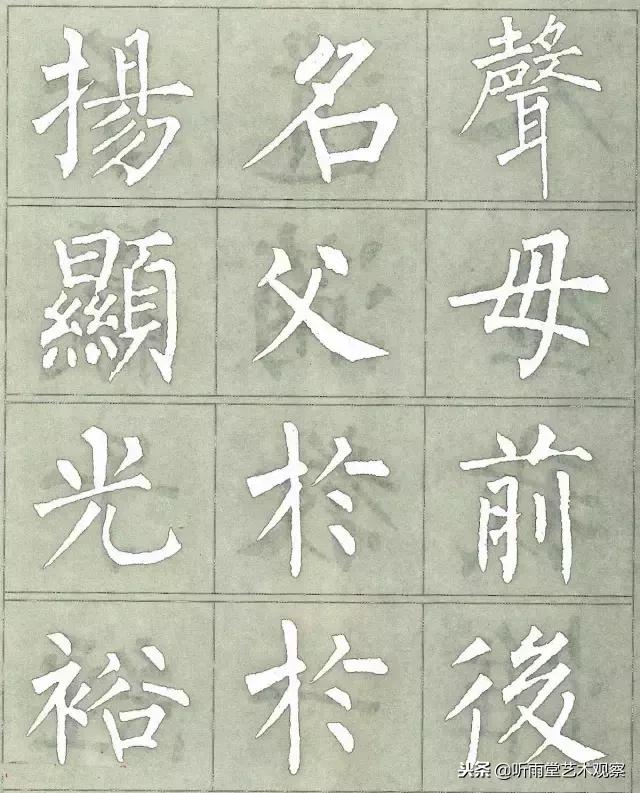 揚名聲
顯父母
光於前
裕於後
头条 @听雨堂艺术观察